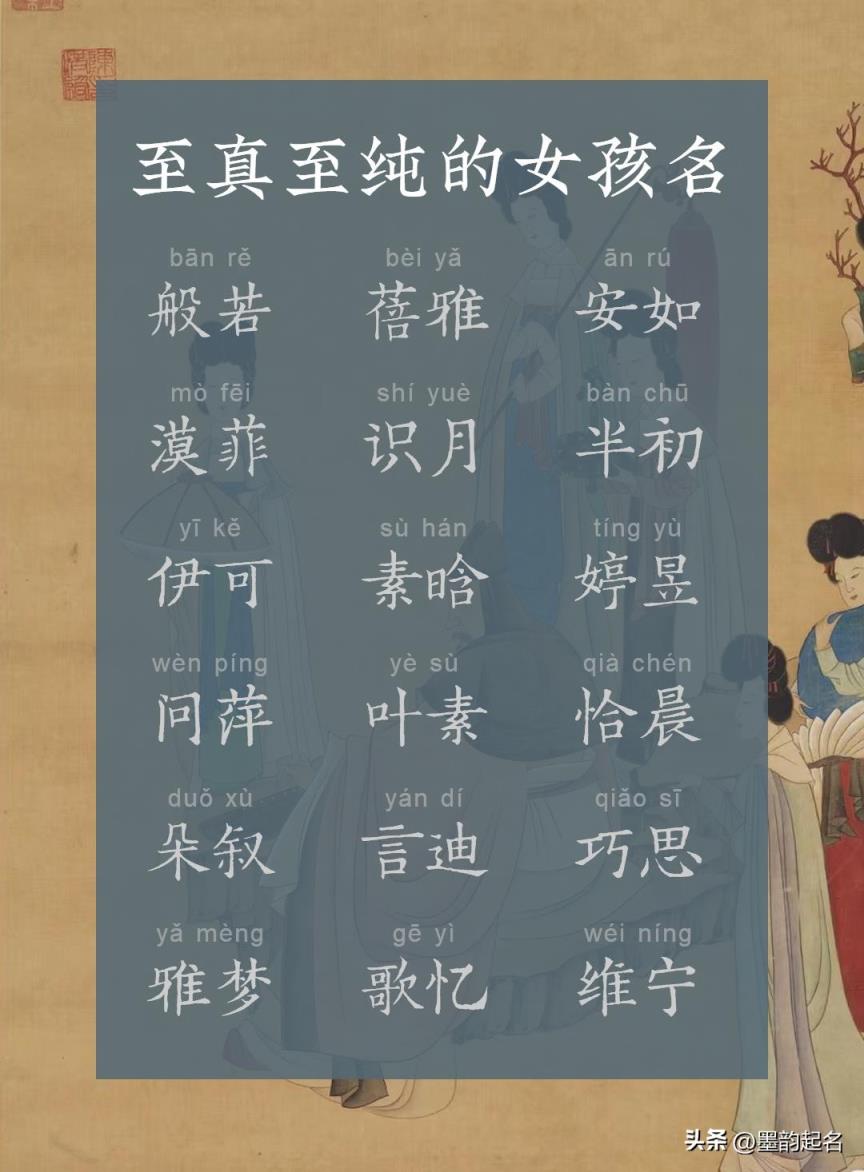 至真至纯的女孩名
bān rě bèi yǎ ān rú
般若 蓓雅 安如
mò fēi shí yuè bàn chū
漠菲 识月 半初
yī kě sù hán tíng yù
伊可 素晗 婷昱
wèn píng yè sù qià chén
问萍 叶素 恰晨
duǒ xù yán dí qiǎo sī
朵叙 言迪 巧思
yǎ mèng gē yì wéi níng
雅梦 歌忆 维宁
头条 @墨韵起名